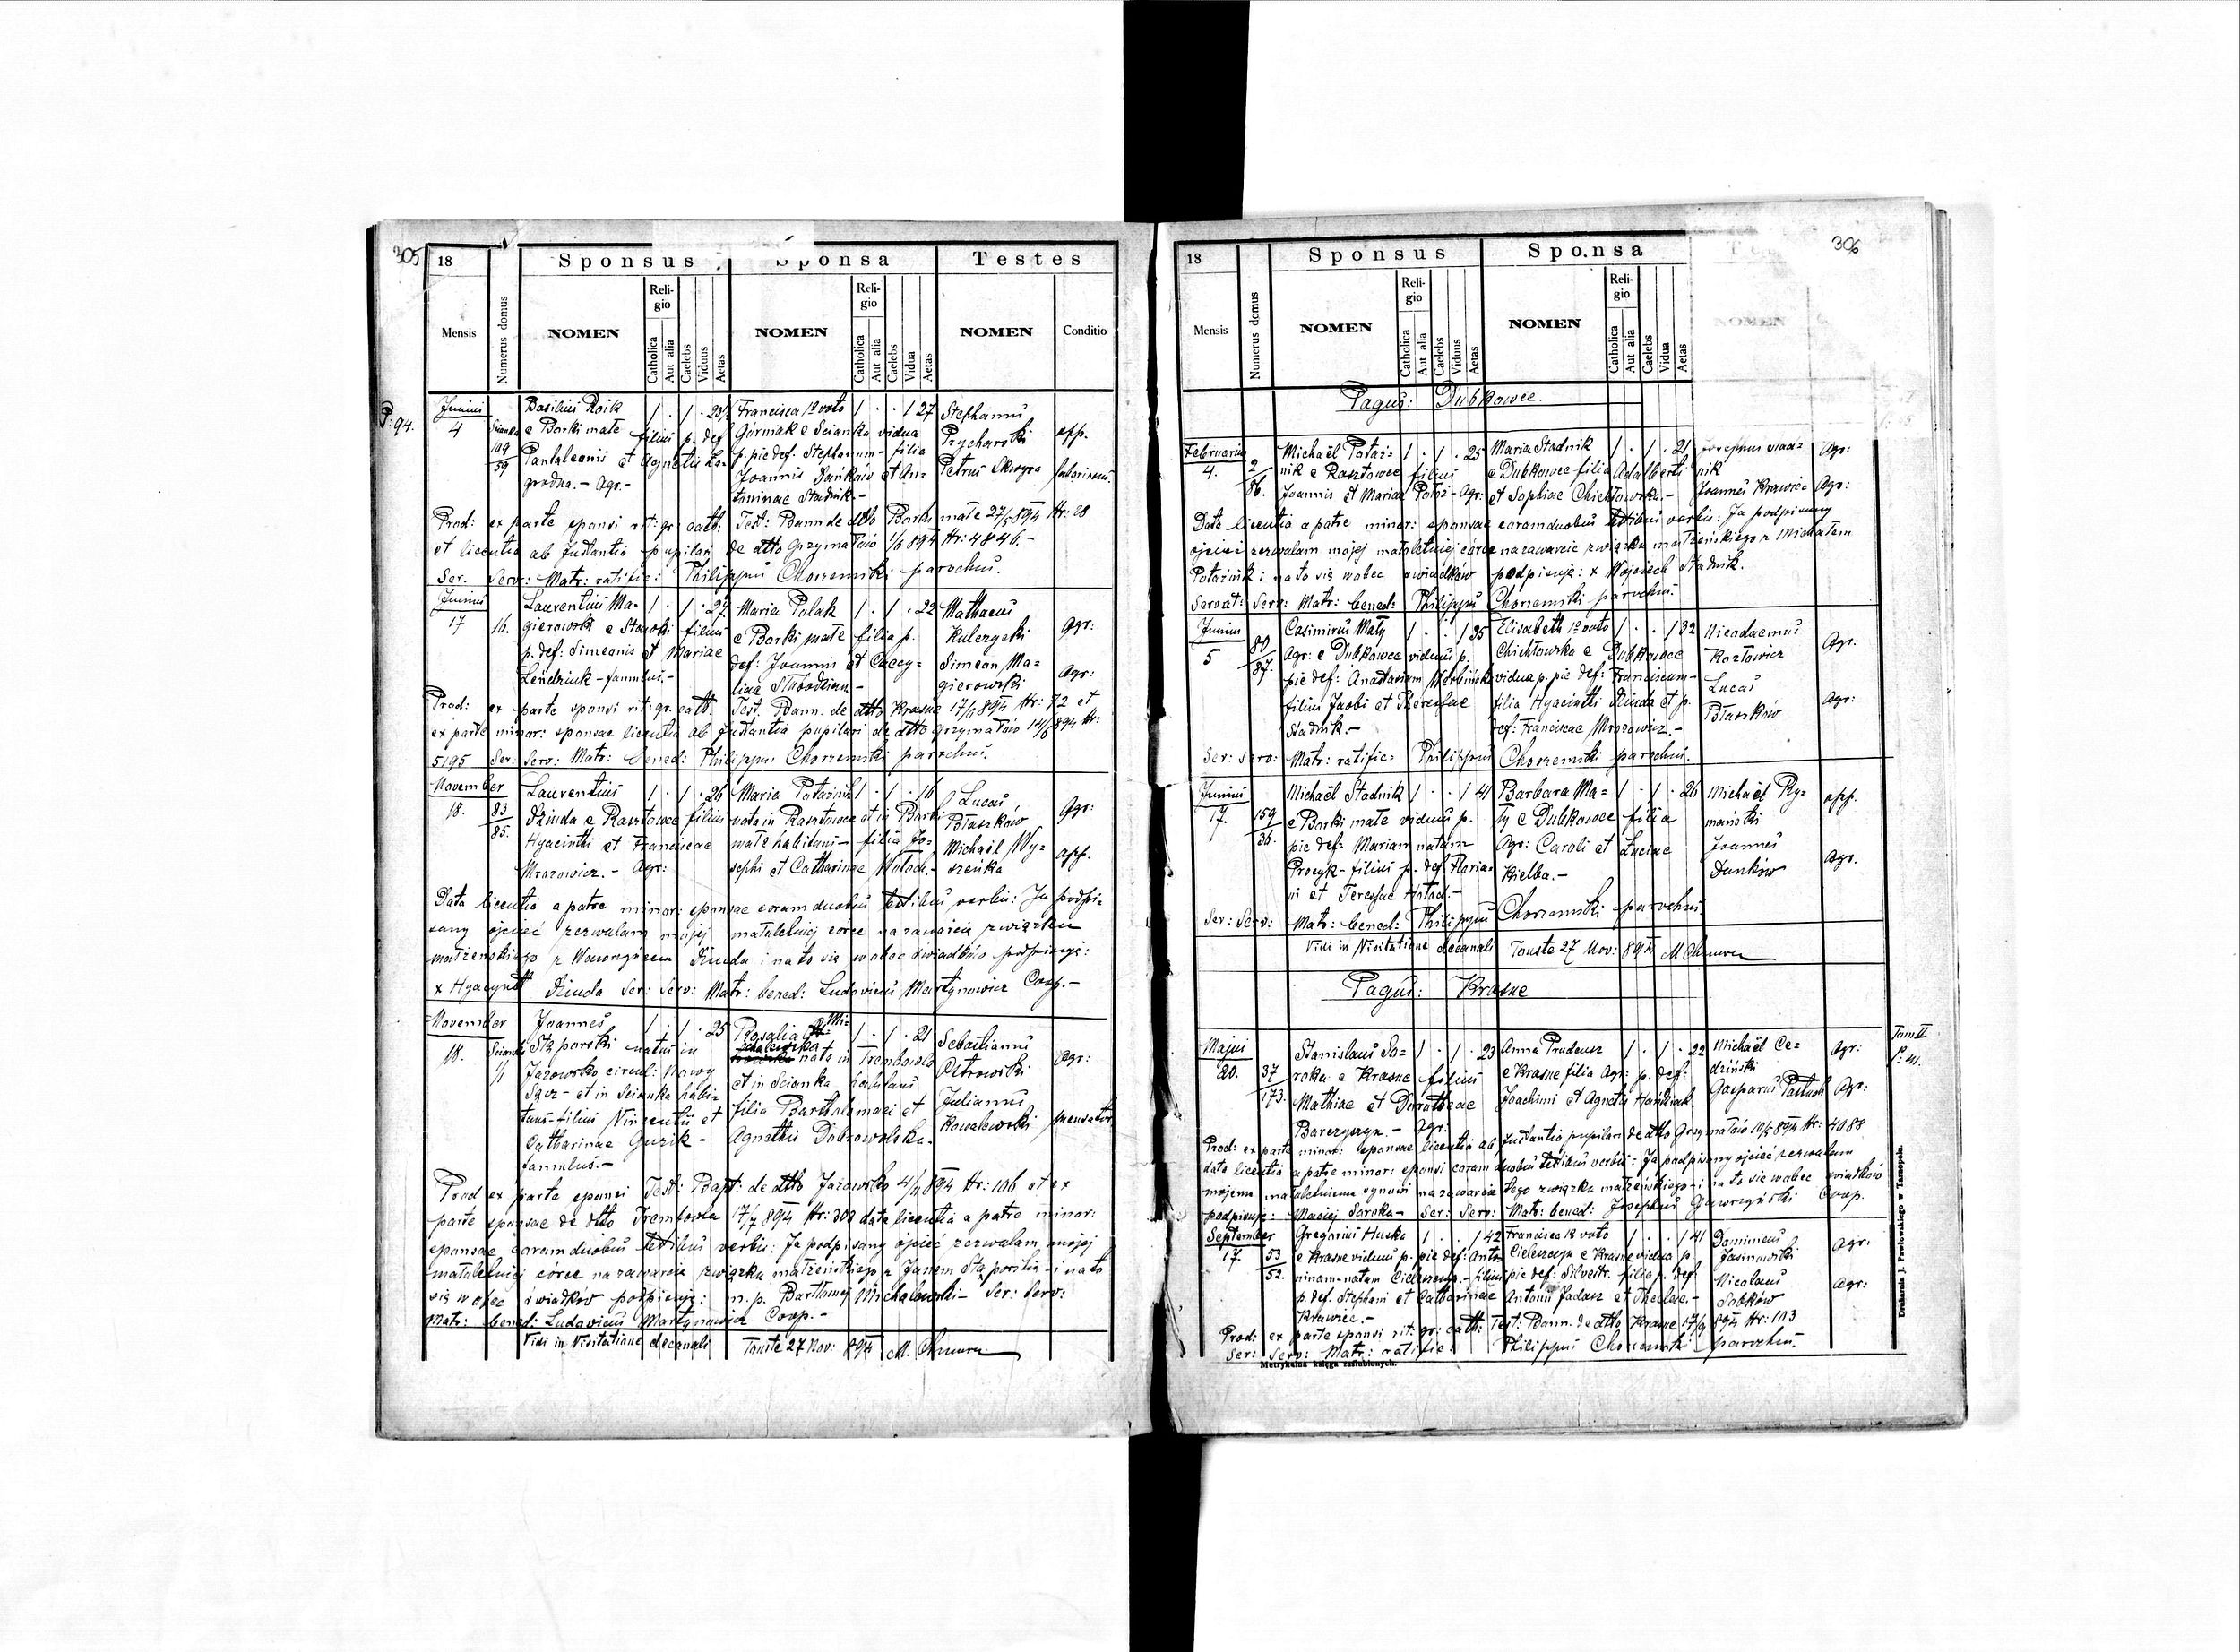 305
18
Sponsus
Sponsa
Testes
Mensis
Numerus domus
NOMEN
Religio
Catholica
Aut alia
Caelebs
Viduus
Aetas
NOMEN
Religio
Catholica
Aut alia
Caelebs
Vidua
Aetas
NOMEN
Conditio
P: 94.
Junius
4
Scianka
109
59
Basilius Roik
e Borki małe filius p. def
Pantaleonis et Agnetis
- Agr. -
1 . 1 .
Francisca 1º voto
Górniak e Scianka vidua
p. pie def: Stephanum - filia
Joannis Dańków et An=
toninae Stadnik -
1 . . 1 27
Stephanus
Prycharski
Petrus
opp.
Prod: ex parte sponsi rit: gr: cath: Test: Bann de dtto Borki małe 27/5 894 Nr: 28
et licentia ab Instantia pupilari de dtto Grzymałów 1/6 894 Nr: 4846. -
Ser. Serv: Matr: ratific: Philippus Chorzemski parochus.
Junius
17
16.
Laurentius Ma=
gierowski e Stawki filius
p. def: Simeonis et Mariae
- famulus. -
1 . 1 . 27
Maria Polak
e Borki małe filia p.
def: Joannis et Caecy=
liae Słobodzian -
1 . 1 . 22
Mathaeus
Kulczycki
Simeon Ma=
gierowski
Agr:
Agr:
Prod: ex parte sponsi rit: gr. cath. Test. Bann: de dtto Krasne 17/6 894 Nr: 72 et
ex parte minor: sponsae licentia ab Instantia pupilari de dtto Grzymałów 14/6 894 Nr:
5195 Ser: Serv: Matr: bened: Philippus Chorzemski parochus.
November
18.
83
85.
Laurentius
Dziuda e Rasztowce filius
Hyacinthi et Franciscae
Mrozowicz. - Agr:
1 . 1 . 26
Maria Potaźnik
nata in Rasztowce et in Borki
małe habitans - filia Jo=
sephi et Catharinae Wołoch. -
1 . 1 . 16
Lucas
Błaszków
Michaël Wy=
szeńka
Agr:
opp.
Data licentia a patre minor: sponsae coram duobus testibus verbis: Ja podpi=
sany ojciec zezwalam mojej małoletniej córce na zawarcie związku
małżeńskiego z Wawrzyńcem Dziuda i na to się wobec świadków podpisuje:
x Hyacynth Dziuda Ser: Serv: Matr: bened: Ludovicus Martynowicz Coop. -
November
18.
Scianka
1/1
Joannes
Stąporski natus in
Jazowsko circul: Nowy
Sącz - et in Scianka habi=
tans - filius Vincentii et
Catharinae Guzik -
famulus. -
1 . 1 . 25
Rosalia Mi=
chalewska
nata in Trembowla
et in Scianka habitans
filia Bartholomaei et
Agnethis Dobrowolska.
1 . 1 . 21
Sebastianus
Ostrowski
Julianus
Kowalewski
Agr:
Prod ex parte sponsi Test: Bapt: de dtto Jazowsko 4/11 894 Nr: 106 et ex
parte sponsae de dtto Trembowla 17/7 894 Nr: 308 data licentia a patre minor:
sponsae coram duobus testibus verbis: Ja podpisany ojciec zezwalam mojej
małoletniej córce na zawarcie związku małżeńskiego z Janem Stąporskim - i na to
się wobec świadków podpisuje: n. p. Bartłomej Michalewski - Ser: Serv:
Matr: bened: Ludovicus Martynowicz Coop. -
Vidi in Visitatione decanali Touste 27 Nov: 894 M. Chmura
306
18
Sponsus
Sponsa
Mensis
Numerus domus
NOMEN
Religio
Catholica
Aut alia
Caelebs
Viduus
Aetas
NOMEN
Religio
Catholica
Aut alia
Caelebs
Vidua
Aetas
NOMEN
Pagus: Dubkowce.
Februarius
4.
2
86.
Michaël Potaź=
nik e Rasztowce filius
Joannis et Mariae Potaź - Agr:
1 . 1 . 25
Maria Stadnik
e Dubkowce filia Adalberti
et Sophiae Chichtowska. -
1 . 1 . 21
Josephus
nik
Joannes Krawiec
Agr:
Agr:
Data licentia a patre minor: sponsae coram duobus testibus verbis: Ja podpisany
ojciec zezwalam mojej małoletniej córce na zawarcie związku małżeńskiego z Michałem
Potaźnik i na to się wobec świadków podpisuje: x Wojciech Stadnik.
Servat: Serv: Matr: bened: Philippus Chorzemski parochus.
Junius
5
80
87.
Casimirus Mały
Agr: e Dubkowce viduus p.
pie def: Anastasiam
filius Jacobi et Theresiae
Stadnik. -
1 . . 1 35
Elisabeth 1º voto
Chichtowska e Dubkowce
vidua p. pie def: Franciscum -
filia Hyacinthi Dziuda et p.
def: Franciscae Mrozowicz. -
1 . . 1 32
Nicodaemus
Kozłowicz
Lucas
Błaszków
Agr:
Agr:
Ser: Serv: Matr: ratific: Philippus Chorzemski parochus.
Junius
17.
159
36.
Michaël Stadnik
e Borki małe viduus p.
pie def: Mariam natam
Procyk - filius p. def Floria=
ni et Teresiae Hołod. -
1 . . 1 41
Barbara Ma=
ły e Dubkowce filia
Agr: Caroli et Luciae
Kiełba. -
1 . 1 . 26
Michaël Ry=
mański
Joannes
Dańków
opp.
Agr.
Ser: Serv: Matr: bened: Philippus Chorzemski parochus.
Vidi in Visitatione decanali Touste 27 Nov: 894 M Chmura
Pagus: Krasne
Majus
20.
37
173.
Stanislaus So=
roka e Krasne filius
Mathiae et Dorotheae
Barczyszyn. - Agr:
1 . 1 . 23
Anna Prudeusz
e Krasne filia Agr: p. def:
Joachimi et Agnetis
1 . 1 . 22
Michaël Ce=
dziński
Gasparus Pastuch
Agr:
Agr:
Tom II
P: 41.
Prod: ex parte minor: sponsae licentia ab Instantia pupilari de dtto Grzymałów 10/5 894 Nr: 4088
data licentia a patre minor: sponsi coram duobus testibus verbis: Ja podpisany ojciec zezwalam
mojemu małoletniemu synowi na zawarcie tego związku małżeńskiego - i na to się wobec świadków
podpisuje: Maciej Soroka - Ser: Serv: Matr: bened: Josephus Gaworzyński Coop.
September
17.
53
52.
Gregorius Huska
e Krasne viduus p. pie def: Anto=
ninam - natam - filius
p. def. Stephani et Catharinae
Krawiec. -
1 . . 1 42
Francisca 1º voto
Cieleszczyn e Krasne vidua p.
pie def: Silvestr. filia p. def
Antonii Jadasz et Theclae. -
1 . . 1 41
Dominicus
Jasinowski
Nicolaus
Sobków
Agr:
Agr:
Prod: ex parte sponsi rit: gr: cath: Test: Bann. de dtto Krasne 17/9 894 Nr: 103
Ser: Serv: Matr: ratific: Philippus Chorzemski parochus.
Metrykalna księga zaślubionych.
Drukarnia J. Pawłowskiego w Tarnopolu.